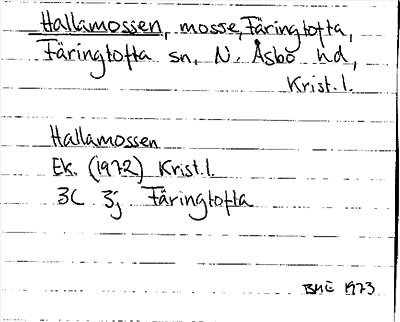 Hallamossen, mosse, Färingtofta,
Färingtofta sn, N. Åsbo hd,
Krist. l.
Hallamossen
Ek. (1972) Krist. l.
3C 3j Färingtofta
BHE 1973